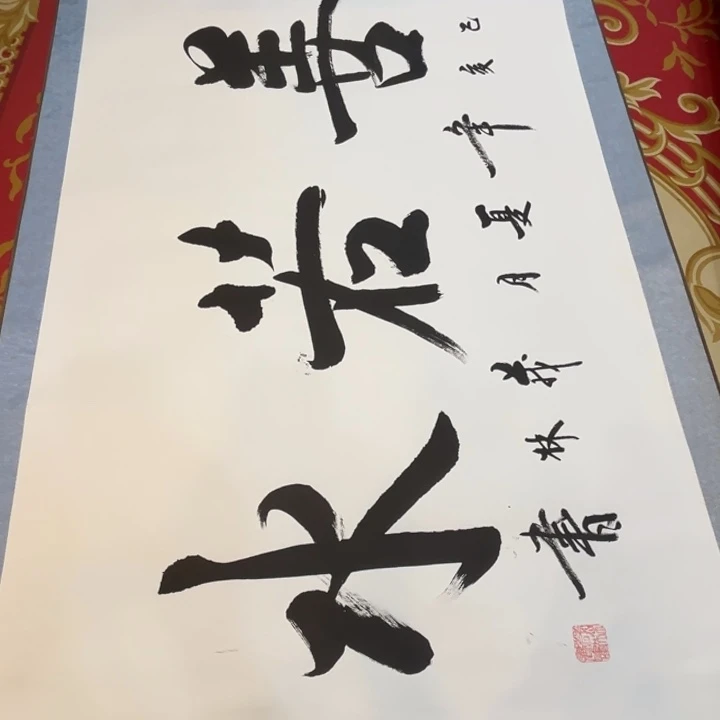 善若水
己亥年夏月 林書